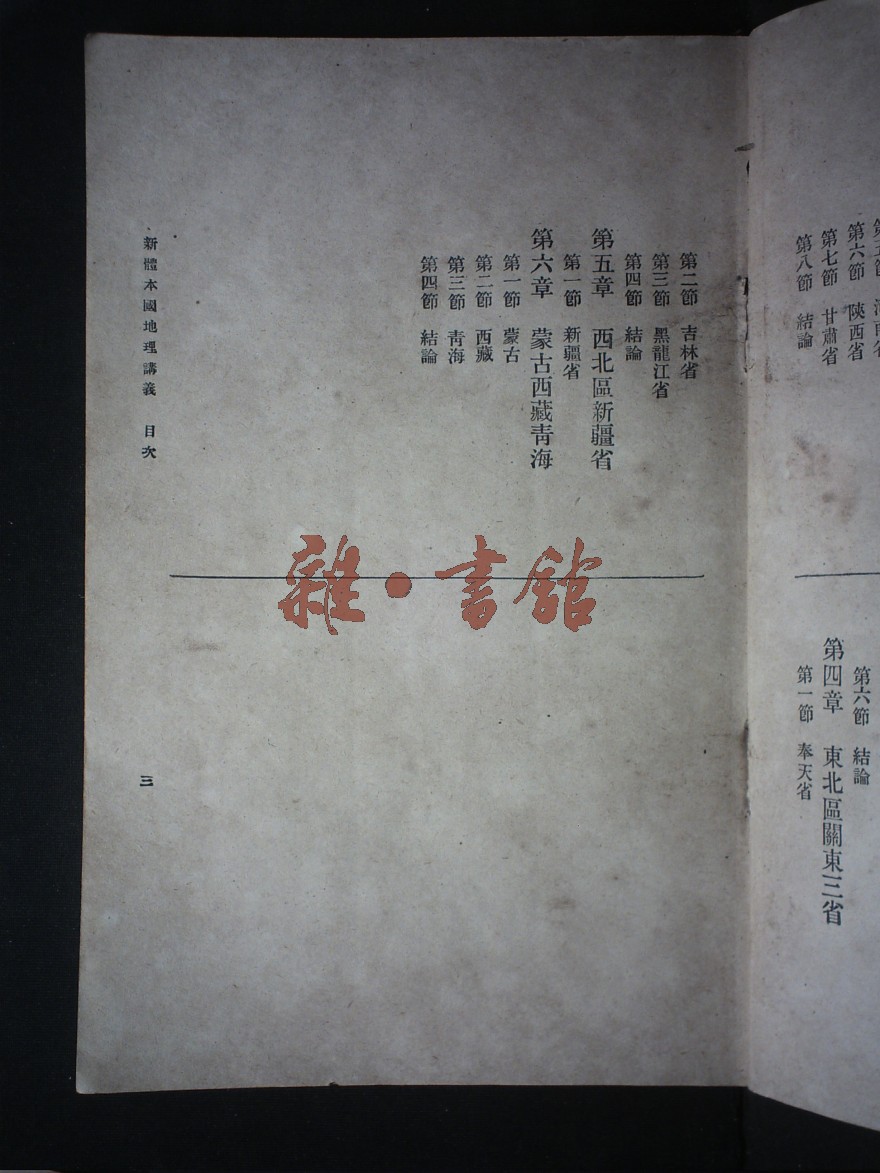 第六節　陝西省
第七節　甘肅省
第八節　結論
第六節　結論
第四章　東北區關東三省
第一節　奉天省
第二節　吉林省
第三節　黑龍江省
第四節　結論
第五章　西北區新疆省
第一節　新疆省
第六章　蒙古西藏靑海
第一節　蒙古
第二節　西藏
第三節　靑海
第四節　結論
新體本國地理講義　目次
三
雜·書館